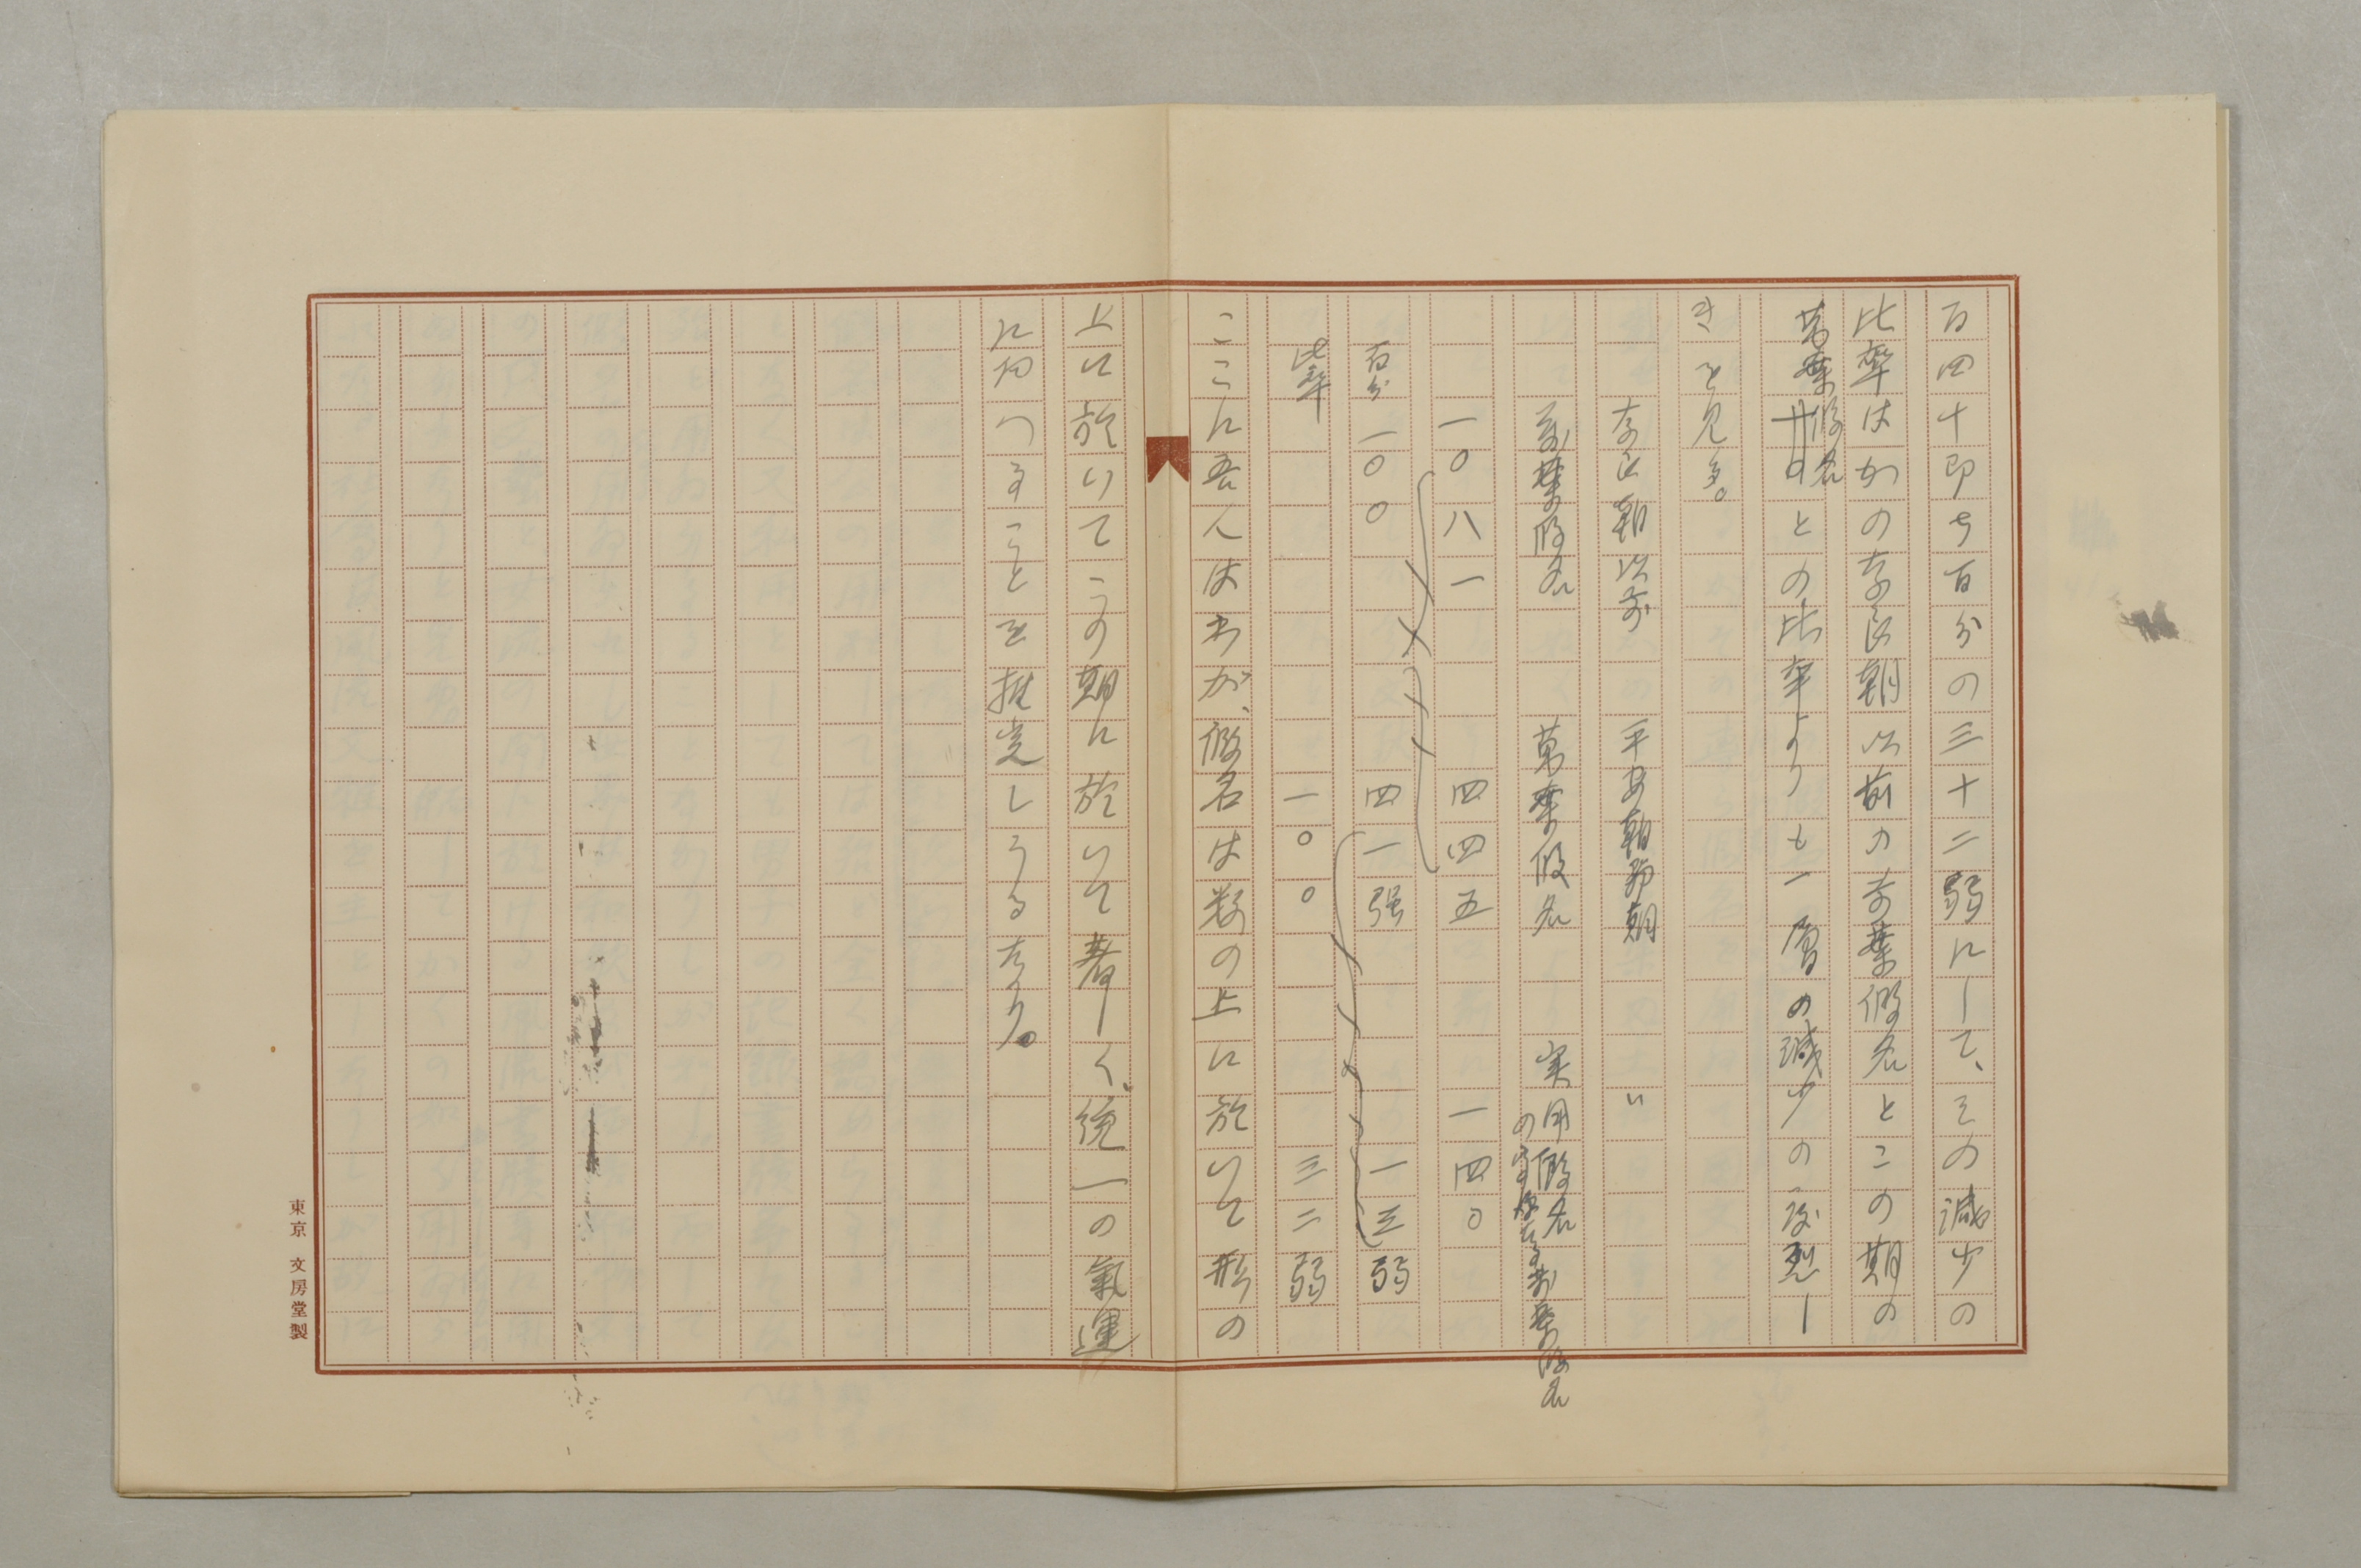 百四十即ち百分の三十二弱にして、その減少の
比率はかの奈良朝以前の万葉假名とこの期の
萬葉假名との比率よりも一層の減少の激烈し
きを見る。
奈良朝以前 平安朝初期 〃
萬葉假名 萬葉假名 実用假名の字源たる萬葉假名
一〇八一 四四五 一四〇
百分 一〇〇 四一强 一三弱
比率 一〇〇 三二弱
ここに吾人はわが假名は数の上に於いて形の
上に於いてこの期に於いて著しく、統一の氣運
に向つることを推定しうるなり。
東京 文房堂製